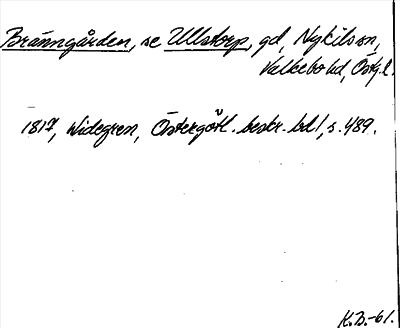 Bränngården, se Ullstorp, gd, Nykils sn,
Valkebo hd, Östg.l.
1817, Widegren, Östergötl. beskr. bd 1, s. 489.
K.B.-61.